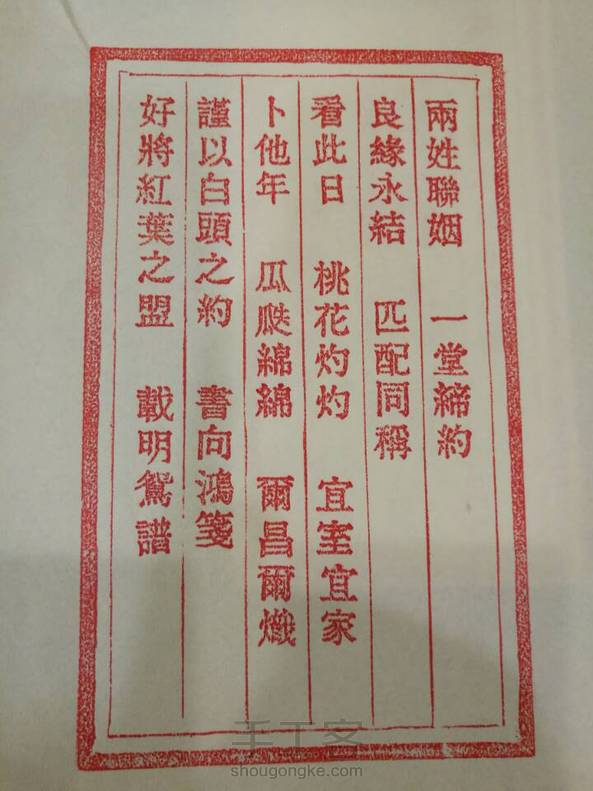 兩姓聯姻 一堂締約
良緣永結 匹配同稱
看此日 桃花灼灼 宜室宜家
卜他年 瓜瓞綿綿 爾昌爾熾
謹以白頭之約 書向鴻箋
好將紅葉之盟 載明鴛譜
手工客
shougongke.com